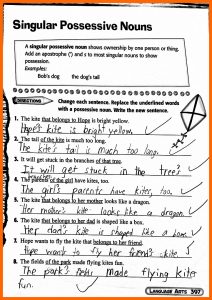 Singular Possessive Nouns
A singular possessive noun shows ownership by one person or thing.
Add an apostrophe (') and s to most singular nouns to show
possession.
Examples:
Bob's dog the dog's tail
DIRECTIONS Change each sentence. Replace the underlined words
with a possessive noun. Write the new sentence.
1. The kite that belongs to Hope is bright yellow.
Hope's kite is bright yellow.
2. The tail of the kite is much too long.
The kite's tail is much too long.
3. It will get stuck in the branches of that tree.
It will get stuck in the tree's
branches.
4. The parents of the girl have kites, too.
The girl's parents have kites, too.
5. The kite that belongs to her mother looks like a dragon.
Her mother's kite looks like a dragon.
6. The kite that belongs to her dad is shaped like a box.
Her dad's kite is shaped like a box.
7. Hope wants to fly the kite that belongs to her friend.
Hope wants to fly her friend's kite.
8. The fields of the park made flying kites fun.
The park's fields made flying kites
fun.
LANGUAGE ARTS 397